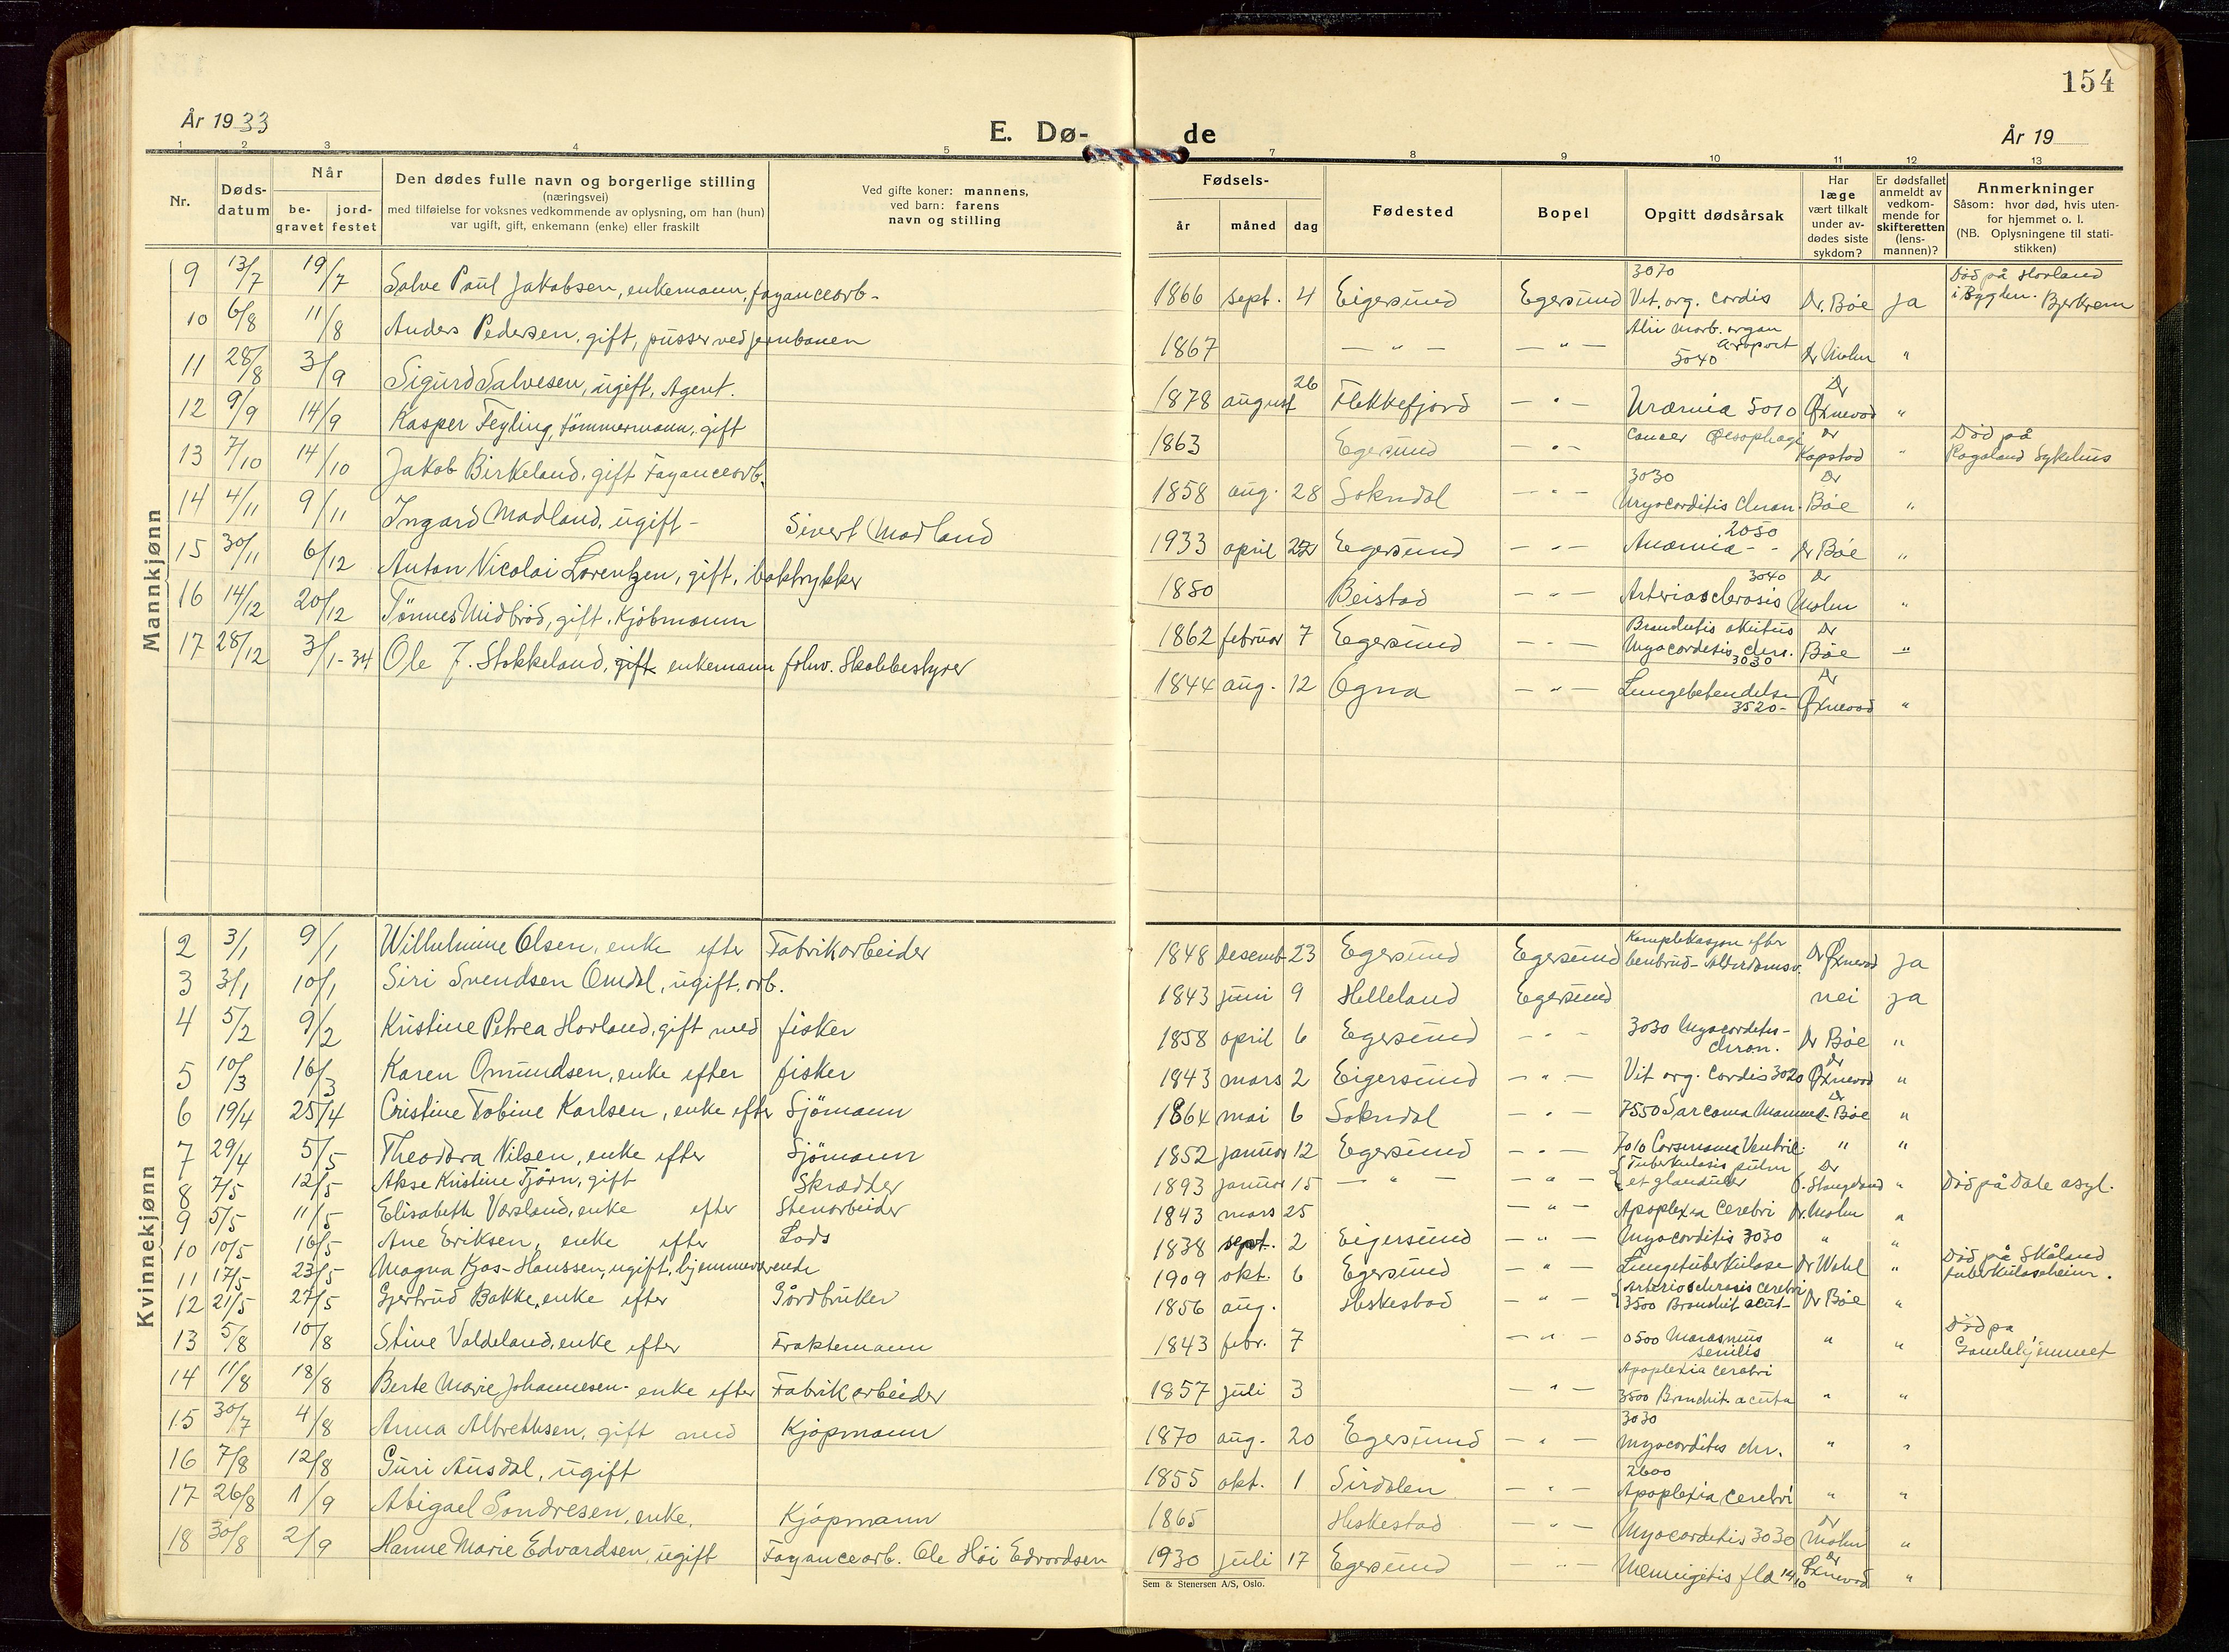 154
År 1933
E. Dø-
de
År 19
1 2 3 4 5 7 8 9 10 11 12 13
Nr.
Døds-
datum
Når
be-
gravet
jord-
festet
Den dødes fulle navn og borgerlige stilling
(næringsvei)
med tilføielse for voksnes vedkommende av oplysning, om han (hun)
var ugift, gift, enkemann (enke) eller fraskilt
Ved gifte koner: mannens,
ved barn: farens
navn og stilling
Fødsels-
år måned dag
Fødested
Bopel
Opgitt dødsårsak
Har
læge
vært tilkalt
under av-
dødes siste
sykdom?
Er dødsfallet
anmeldt av
vedkom-
mende for
skifteretten
(lens-
mannen)?
Anmerkninger
Såsom: hvor død, hvis uten-
for hjemmet o. l.
(NB. Oplysningene til stati-
stikken)
Mannkjønn
9 13/7 19/7 Salve Paul Jakobsen, enkemann, fayancearb- 1866 sept. 4 Eigersund Egersund 3070 Vit. org. cordis Dr. Bøe ja Død på Hovland i Bygden. Bjerkrem
10 6/8 11/8 Anders Pedersen, gift, pusser ved jernbanen 1867 — " — — " — Alii morb. organ 5040 Dr Molm "
11 28/8 3/9 Sigurd Salvesen, ugift, Agent. 1878 august 26 Flekkefjord — " — Uræmia 5010 Dr Øxnevad "
12 9/9 14/9 Kasper Feyling, tømmermann, gift 1863 Egersund — " — Cancer Oesophagi Dr Kapstad " Død på Rogaland Sykehus
13 7/10 14/10 Jakob Birkeland, gift Fayancearb. 1858 aug. 28 Sokndal — " — 3030 Myocarditis chron. Dr Bøe "
14 4/11 9/11 Ingard Madland, ugift - Sivert Madland 1933 april Egersund — " — 2050 Anæmia - - Dr Bøe "
15 30/11 6/12 Anton Nicolai Lorentzen, gift, boktrykker 1850 Beistad — " — 3040 Arteriosclerosis Dr Molm "
16 14/12 20/12 Tønnes Midbrød, gift. Kjøbmann 1862 februar 7 Egersund — " — Bronchitis akutus Myocarditis chro. 3030 Dr Bøe "
17 28/12 3/1-34 Ole J. Stokkeland, gift enkemann fhv. Skolebestyrer 1844 aug. 12 Ogna — " — Lungebetendelse 3520- Dr Øxnevad "
Kvinnekjønn
2 3/1 9/1 Wilhelmine Olsen, enke efter Fabrikarbeider 1848 desemb 23 Egersund Egersund Komplikasjon efter benbrud - Alderdomsv. Dr Øxnevad ja
3 3/1 10/1 Siri Svendsen Omdal, ugift, arb. 1843 juni 9 Helleland Egersund nei ja
4 5/2 9/2 Kristine Petrea Hovland, gift med fisker 1858 april 6 Egersund — " — 3030 Myocarditis - chron. Dr Bøe "
5 10/3 16/3 Karen Omundsen, enke efter fisker 1843 mars 2 Eigersund — " — Vit org. Cordis 3020 Dr Øxnevad "
6 19/4 25/4 Cristine Tobine Karlsen, enke efter Sjömann 1864 mai 6 Sokndal — " — 7550 Sarcoma Mammae Dr Bøe "
7 29/4 5/5 Theodora Nilsen, enke efter Sjömann 1852 januar 12 Egersund — " — 7010 Carsinoma Ventric. " "
8 7/5 12/5 Akse Kristine Tjörn, gift Skrædder 1893 januar 15 — " — — " — Tuberkulosis pulm et glanduler Dr Stangeland " Død på Dale asyl.
9 5/5 11/5 Elisabeth Varsland, enke efter Stenarbeider 1843 mars 25 — " — Apoplexia Cerebri Dr. Molm "
10 10/5 16/5 Ane Eriksen, enke efter Lods 1838 sept. 2 Eigersund — " — Myocarditis 3030 " "
11 17/5 23/5 Magna Kjos-Hanssen, ugift, hjemmeværende 1909 okt. 6 Egersund — " — Lungetuberkulose Dr Wahl " Død på Skåland tuberkuloseheim.
12 21/5 27/5 Gjertrud Bakke, enke efter Gårdbruker 1856 aug. Heskestad — " — Arteriosclerosis cerebri 3500 Bronchit acut- Dr Bøe "
13 5/8 10/8 Stine Valdeland, enke efter Fraktemann 1843 febr. 7 — " — 0500 Marasmus senilis " " Død på Gamlehjemmet
14 11/8 18/8 Berte Marie Johannesen - enke efter Fabrikarbeider 1857 juli 3 — " — Apoplexia cerebri 3500 Bronchit. acuta " "
15 30/7 4/8 Anna Albrethsen, gift med Kjøpmann 1870 aug. 20 Egersund — " — 3030 Myocarditis chr. " "
16 7/8 12/8 Guri Ausdal, ugift 1855 okt. 1 Sirdalen — " — 2600 Apoplexia Cerebri " "
17 26/8 1/9 Abigael Sondresen, enke, Kjøpmann 1865 Heskestad — " — Myocarditis 3030 Dr Molm "
18 30/8 2/9 Hanne Marie Edvardsen, ugift Fayancearb. Ole Høi Edvardsen 1930 juli 17 Egersund — " — Meningitis Dr Øxnevad "
Sem & Stenersen A/S, Oslo.